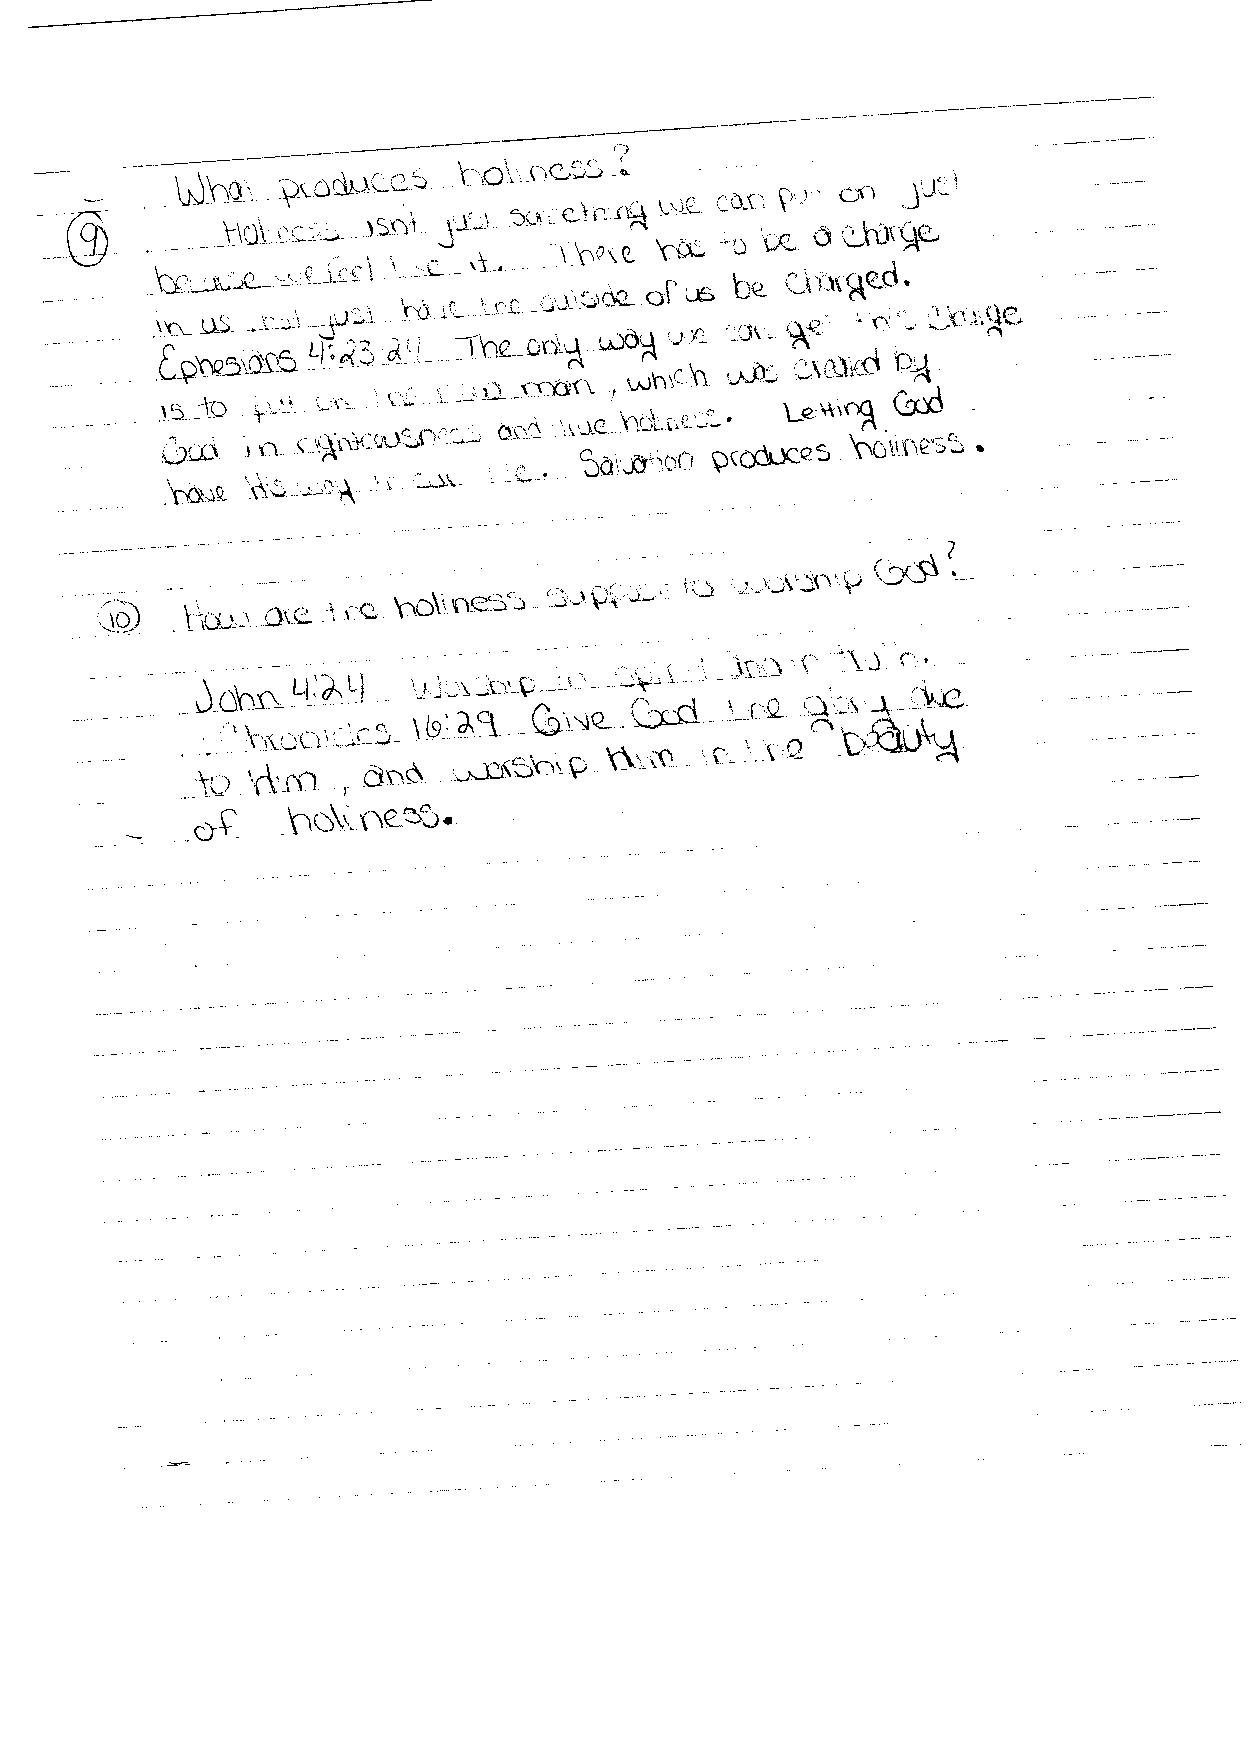 What produces holiness?
9 Holiness isn't just something we can put on just
because we feel like it. There has to be a change
in us not just have the outside of us be changed.
Ephesians 4:23 24 The only way we can get this change
is to put on the new man, which was created by
God in righteousness and true holiness. Letting God
have His way in our life. Salvation produces holiness.
10 How are the holiness suppose to worship God?
John 4:24 Worship in spirit and in truth.
Chronicles 16:29 Give God the glory due
to Him, and worship Him in the beauty
of holiness.